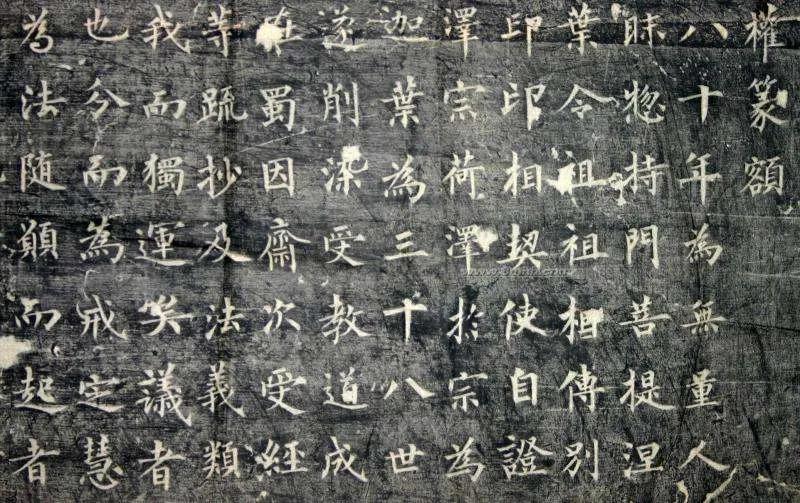 權篆額
八十年為無量人
昧惣持門菩提涅
葉令祖祖相傳別
印印相契使自證
澤宗荷澤於宗為
迦葉為三十八世
遂削染受教道成
在蜀因齋次受經
等疏抄及法義類
我而獨運矣議者
也分而為戒定慧
為法随願而起者